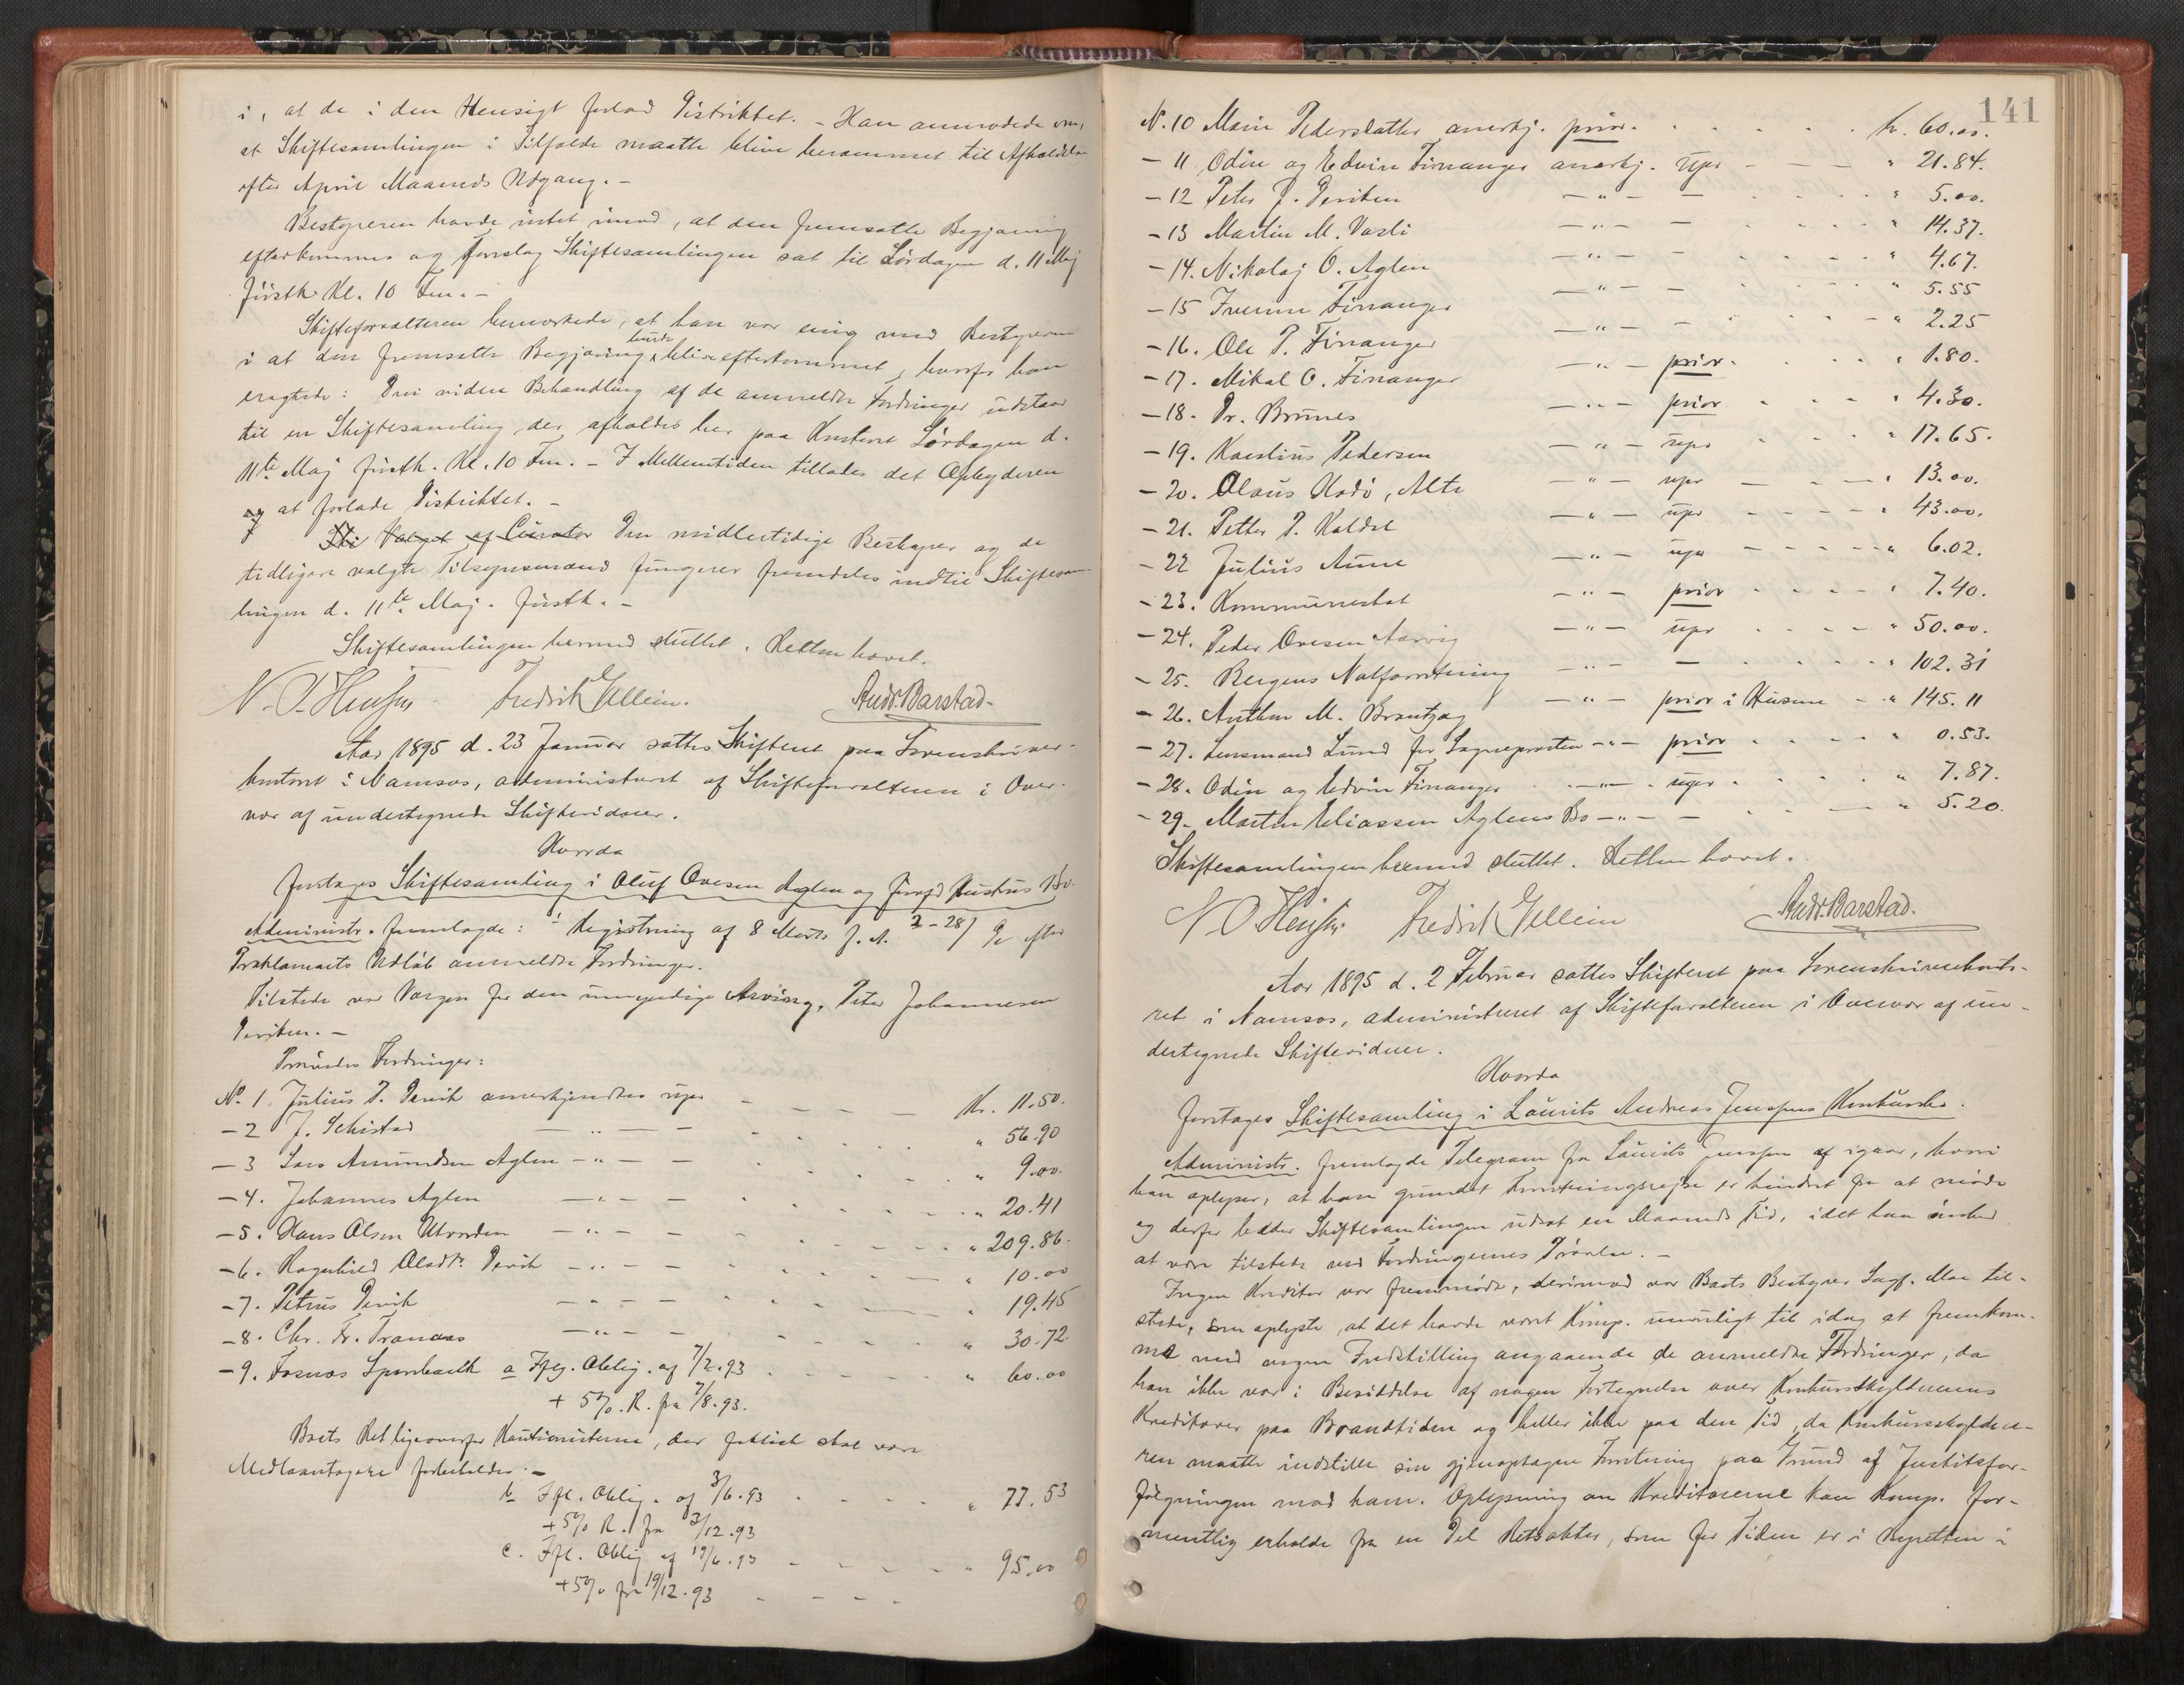 i, at de i den Hensigt forlod Distriktet. – Han anmodede om,
at Skiftesamlingen i Tilfælde maatte blive berammet til Afholdelse
efter April Maaneds Udgang. –
Bestyreren havde intet imod, at den fremsatte Begjæring
efterkommes og foreslog Skiftesamlingen sat til Lördagen d. 11 Maj
förstk. Kl. 10 Fm. –
Skifteforvalteren bemærkede, at han var enig med Bestyreren
i at den fremsatte Begjæring burde blive efterkommet, hvorfor han
eragtede: Den videre Behandling af de anmeldte Fordringer udstaar
til en Skiftesamling, der afholdes her paa Kontoret Lördagen d.
11te Maj förstk. Kl. 10 Fm. – I Mellemtiden tillades det Opbyderen
at forlade Distriktet. –
Valget af Curator Den midlertidige Bestyrer og de
tidligere valgte Tilsynsmænd fungerer fremdeles indtil Skiftesam-
lingen d. 11te Maj förstk. –
Skiftesamlingen hermed sluttet. Retten hævet.
Fredrik Ellein. Andr. Barstad.
Aar 1895 d. 23 Januar sattes Skifteret paa Sorenskriver-
kontoret i Namsos, administreret af Skifteforvalteren i Over-
vær af undertegnede Skiftevidner.
Hvorda
foretoges Skiftesamling i Oluf Ovesen Aglen og Hustrus Bo.
Administr. fremlagde: Registrering af 8 Marts f. A. 2–28) efter
Proklamaets Udlöb anmeldte Fordringer.
Tilstede var Værgen for den umyndige Arving, Peter Johannesen
Deviken. –
Prövedes Fordringer:
No. 1. Julius P. Devik anerkjendtes upr. – – – – Kr. 11.50.
– 2 J. Schistad – " – – " 56.90
– 3 Lars Amundsen Aglen – " – – " 9.00.
– 4. Johannes Aglen – " – – " 20.41
– 5. Hans Olsen Utvorden – " – – " 209.86.
– 6. Ragnhild Olsdtr. Devik – " – – " 10.00
– 7. Petrus Devik – " – – " 19.45
– 8. Chr. Fr. Tranaas – " – – " 30.72
– 9. Fosnæs Sparebank a Oblig. af 7/2.93 " 60.00
+ 5% R. fra 7/8.93.
Boets Ret ligeoverfor Kautionisterne, der faktisk skal være
Medlaantagere forbeholdes. –
b Oblig. af 3/6.93 " 77.53
+ 5% R. fra 3/12.93
c. Oblig af 19/6.93 " 95.00
+ 5% fra 19/12.93
141
N. 10 Marie Pedersdatter anerkj. prior. kr. 60.00.
– 11 Odin og Edvin Finanger anerkj. upr – – " 21.84.
– 12 Peter J. Deviken – " – – " 5.00.
– 13 Martin M. Vasli – " – – " 14.37.
– 14. Nikolaj O. Aglen – " – – " 4.67.
– 15 Finanger – " – – " 5.55
– 16. Ole P. Finanger – " – – " 2.25
– 17. Mikal O. Finanger – " – prior. " 1.80.
– 18. Dr. Brunes – " – prior " 4.30.
– 19. Karolius Pedersen – " – upr " 17.65.
– 20. Olaus Hadö, Alte – " – upr – " 13.00.
– 21. Petter P. Kaldal – " – upr – " 43.00.
– 22 Julius Aune – " – upr – " 6.02.
– 23. Kommuneskat – " – prior " 7.40.
– 24. Peder Ovesen Aarvig – " – upr " 50.00.
– 25. Bergens Notforretning – " – – " 102.31
– 26. Anthon M. Brantzæg – " – prior i Husene – " 145.11
– 27. Lensmand Lund for Sogneprosten – " – prior " 0.53.
– 28. Odin og Edvin Finanger – " – upr " 7.87.
– 29. Morten Eliassen Aglens Bo – " – – " 5.20.
Skiftesamlingen hermed sluttet. Retten hævet.
Fredrik Ellein Andr. Barstad.
Aar 1895 d. 2 Februar sattes Skifteret paa Sorenskriverkonto-
ret i Namsos, administreret af Skifteforvalteren i Overvær af un-
dertegnede Skiftevidner.
Hvorda
foretoges Skiftesamling i Laurits Andreas Jenssens Konkursbo.
Administr. fremlagde Telegram fra Laurits Jenssen af igaar, hvori
han oplyser, at han grundet Forretningsrejse er hindret fra at möde
og derfor beder Skiftesamlingen udsat en Maaneds Tid, idet han önsker
at være tilstede ved Fordringernes Prövelse. –
Ingen Kreditor var fremmödt, derimod var Boets Bestyrer Sagf. Moe til-
stede, som oplyste, at det havde været Komp. umuligt til idag at fremkom-
me med nogen Indstilling angaaende de anmeldte Fordringer, da
han ikke var i Besiddelse af nogen Fortegnelse over Konkursskyldnerens
Kreditorer paa Brandtiden og heller ikke paa den Tid, da Konkursskyldne-
ren maatte indstille sin gjenoptagne Forretning paa Grund af Justitsfor-
fölgningen mod ham. Oplysning om Kreditorerne kan Komp. for-
mentlig erholde fra en Del Retsakter, som for Tiden er i Byretten i